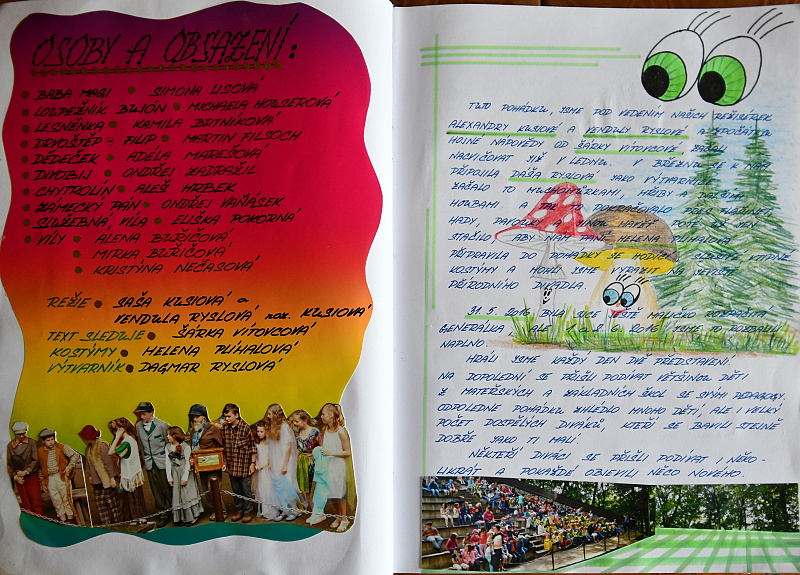 OSOBY A OBSAZENÍ:
BABA MAGI • SIMONA LISOVÁ
LOUPEŽNÍK BUJÓN • MICHAELA HOUSEROVÁ
LESNĚNKA • KAMILA BRTNÍKOVÁ
DRVOŠTĚP - FILIP • MARTIN FILSOCH
DĚDEČEK • ADÉLA MAREŠOVÁ
DIVOBIJ • ONDŘEJ ZADRAŽIL
CHYTROLÍN • ALEŠ HRBEK
ZÁMECKÝ PÁN • ONDŘEJ VAŇÁSEK
SLUŽEBNÁ, VÍLA • ELIŠKA POKORNÁ
VÍLY • ALENA BUŘIČOVÁ
• MIRKA BUŘIČOVÁ
• KRISTÝNA NEČASOVÁ
REŽIE • SAŠA KUSIOVÁ a
VENDULA RYSLOVÁ, roz. KUSIOVÁ
TEXT SLEDUJE • ŠÁRKA VÍTOVCOVÁ
KOSTÝMY • HELENA PLÍHALOVÁ
VÝTVARNÍK • DAGMAR RYSLOVÁ
TUTO POHÁDKU, JSME POD VEDENÍM NAŠICH REŽISÉREK
ALEXANDRY KUSIOVÉ A VENDULY RYSLOVÉ A ZPOČÁTKU
HOJNÉ NÁPOVĚDY OD ŠÁRKY VÍTOVCOVÉ ZAČALI
NACVIČOVAT JIŽ V LEDNU. V BŘEZNU SE K NÁM
PŘIPOJILA DAŠA RYSLOVÁ JAKO VÝTVARNÍK.
ZAČALO TO MUCHOMŮRKAMI, HŘIBY A DALŠÍMI
HOUBAMI A PAK TO POKRAČOVALO PŘES
HADY, PAVOUKY A JINOU HAVĚŤ. POTÉ UŽ JEN
STAČILO, ABY NÁM PANÍ HELENA PLÍHALOVÁ
PŘIPRAVILA DO POHÁDKY SE HODÍCÍ, SLUŠIVÉ, VTIPNÉ
KOSTÝMY A MOHLI JSME VYRAZIT NA JEVIŠTĚ
PŘÍRODNÍHO DIVADLA.
31. 5. 2016 BYLA SICE JEŠTĚ MALIČKO ROZPAČITÁ
GENERÁLKA, ALE 1. a 2. 6. 2016 JSME TO ROZBALILI
NAPLNO.
HRÁLI JSME KAŽDÝ DEN DVĚ PŘEDSTAVENÍ.
NA DOPOLEDNÍ SE PŘIŠLI PODÍVAT VĚTŠINOU DĚTI
Z MATEŘSKÝCH A ZÁKLADNÍCH ŠKOL SE SVÝMI PEDAGOGY.
ODPOLEDNE POHÁDKU ZHLÉDLO MNOHO DĚTÍ, ALE I VELKÝ
POČET DOSPĚLÝCH DIVÁKŮ, KTEŘÍ SE BAVILI STEJNĚ
DOBŘE JAKO TI MALÍ.
NĚKTEŘÍ DIVÁCI SE PŘIŠLI PODÍVAT I NĚKO-
LIKRÁT A POKAŽDÉ OBJEVILI NĚCO NOVÉHO.